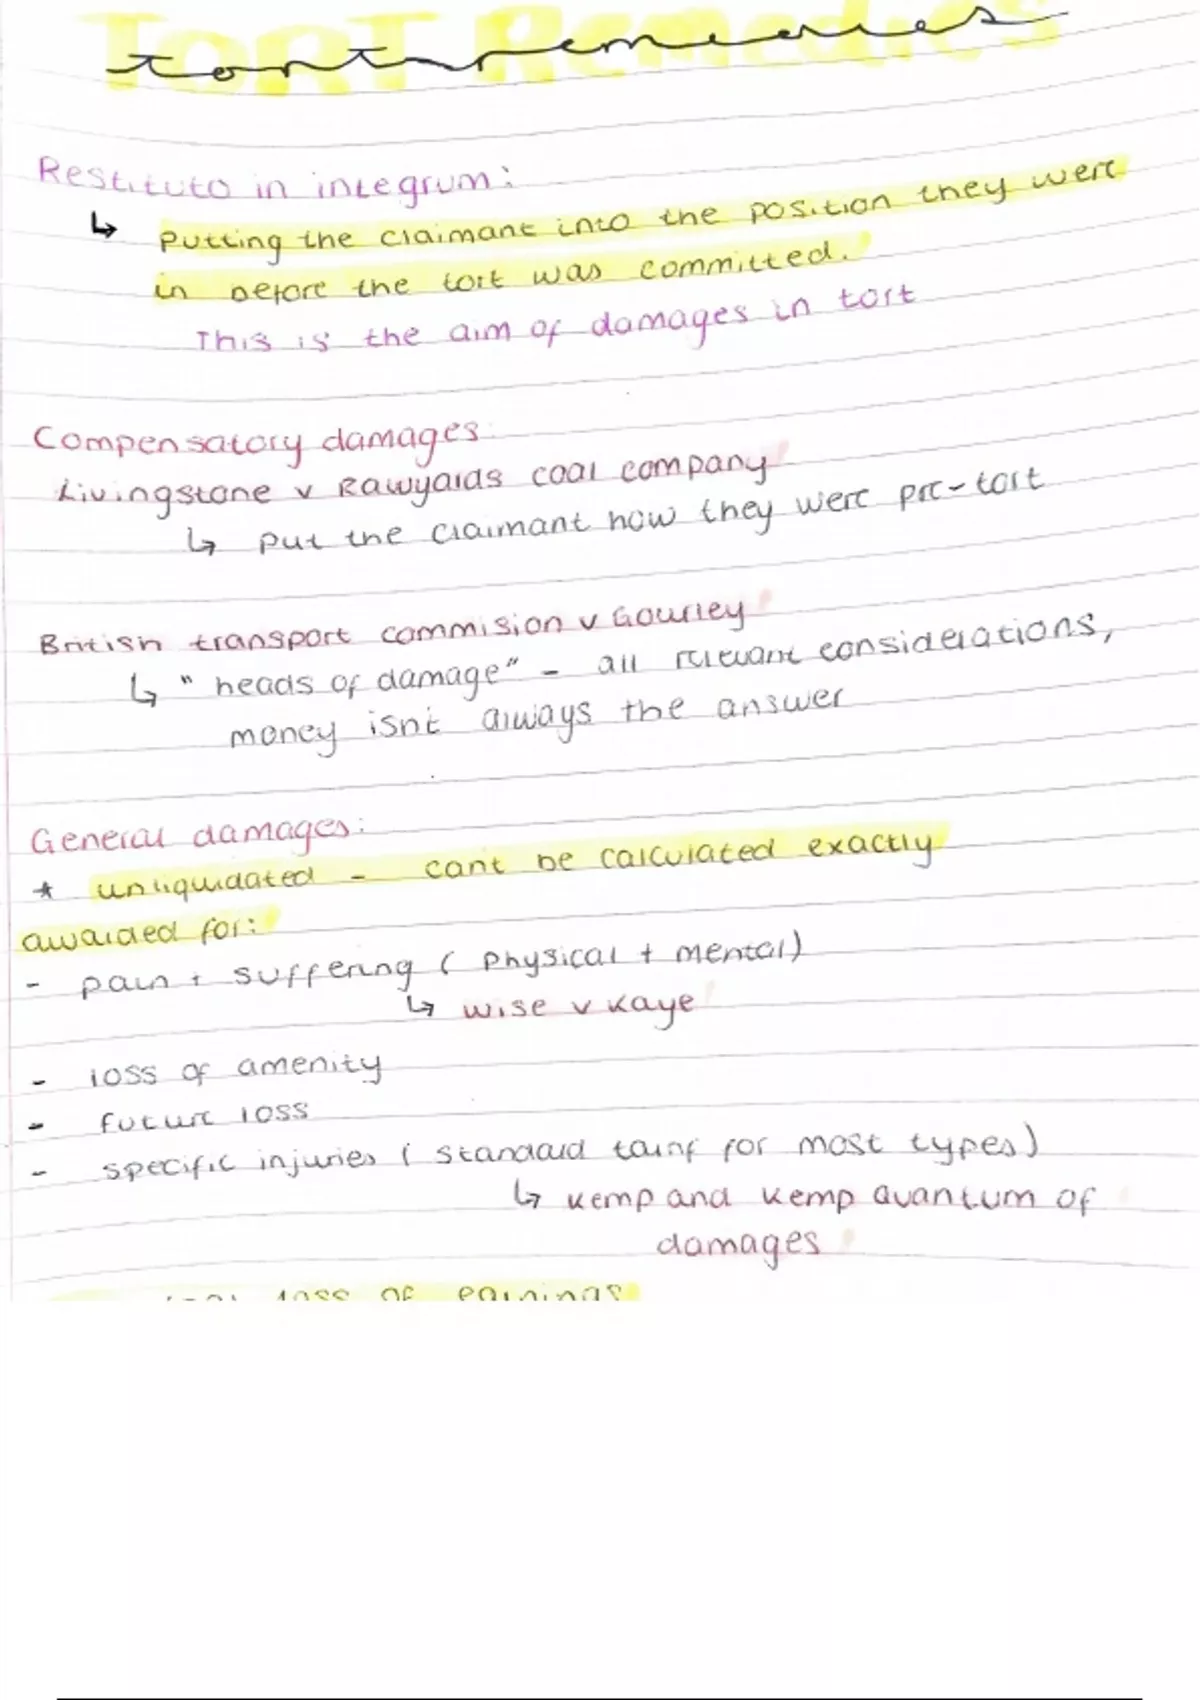 TORT Remedies
tort remedies
Restituto in integrum:
↳ putting the claimant into the position they were
in before the tort was committed.
This is the aim of damages in tort
Compensatory damages:
Livingstone v Rawyards coal company
↳ put the claimant how they were pre-tort
British transport commision v Gourley
↳ "heads of damage" - all relevant considerations,
money isnt always the answer
General damages:
* unliquidated - cant be calculated exactly
awarded for:
- pain + suffering ( physical + mental)
↳ wise v kaye
- loss of amenity
- future loss
- specific injuries ( standard tarif for most types)
↳ kemp and kemp quantum of
damages
loss of earnings